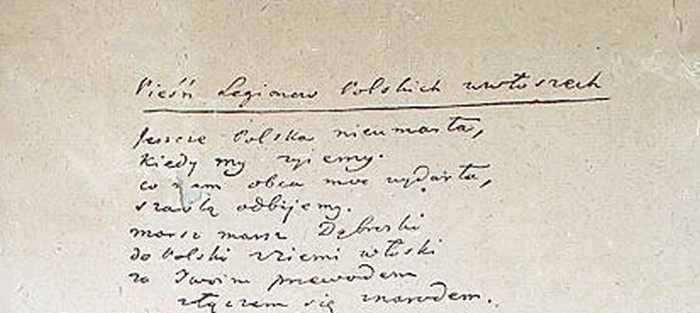 Pieśń Legionow Polskich wewłoszech
Jeszcze Polska nieumarła,
kiedy my żyjemy.
co nam obca moc wydarła,
szablą odbijemy.
marsz marsz Dąbroski
do Polski z ziemi włoski
za Twoim przewodem
złączem się znarodem.